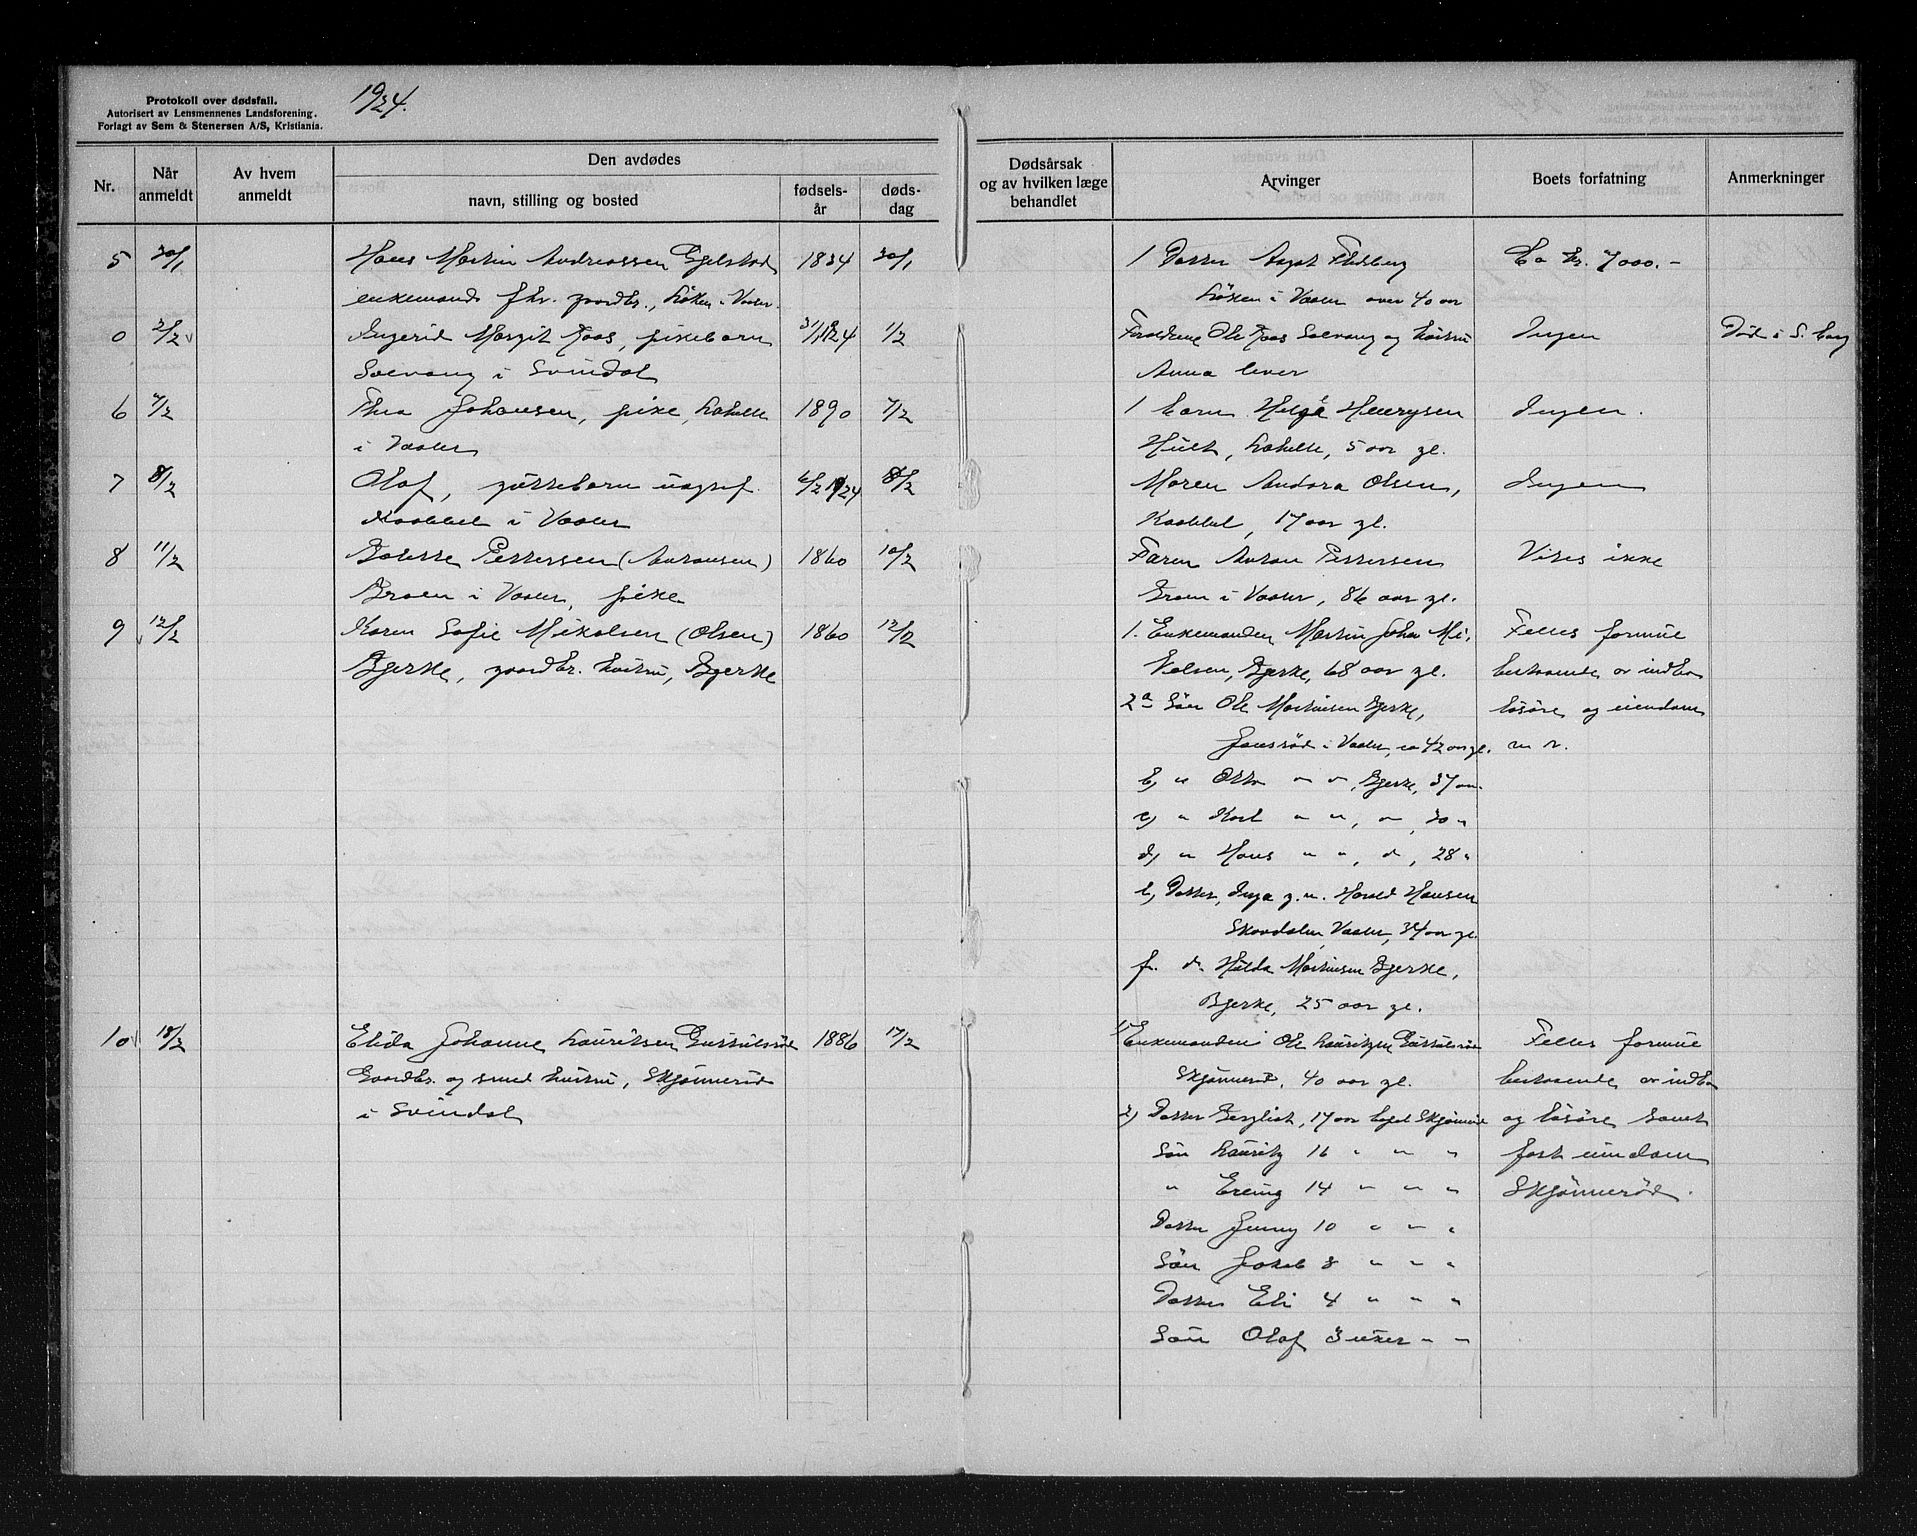 Protokoll over dødsfall.
Autorisert av Lensmennenes Landsforening.
Forlagt av Sem & Stenersen A/S, Kristiania.
1924.
Nr.
Når anmeldt
Av hvem anmeldt
Den avdødes
navn, stilling og bosted
fødsels-år
døds-dag
Dødsårsak og av hvilken læge behandlet
Arvinger
Boets forfatning
Anmerkninger
5 30/1 Hans Martin Andreassen Egelstad 1834 30/1 1 Datter Aagot Flesberg Ca kr. 7000.-
enkemand fhv. gaardbr., Løken i Vaaler. Løken i Vaaler over 40 aar
0 2/2 Ingerid Margit Aaas, pikebarn 31/1 1924 1/2 Forældrene Ole Aaas Solvang og hustru Ingen Død i S.
Solvang i Svindal Anna lever
6 7/2 Thea Johansen, pike, 1890 7/2 1 barn Helge Henrysen Ingen.
i Vaaler Hult, 5 aar gl.
7 8/2 Olaf, guttebarn 6/2 1924 8/2 Maren Andora Olsen, Ingen
Kaabbel i Vaaler Kaabbel, 17 aar gl.
8 11/2 Pettersen (Antonsen) 1860 10/2 Faren Anton Pettersen Vites ikke
i Vaaler, pike i Vaaler, 86 aar gl.
9 12/2 Karen Sofie Mikalsen (Olsen) 1860 12/2 1. Enkemanden Martin Johan Mi- Felles formue
Bjerke, gaardbr. hustru, Bjerke kalsen, Bjerke, 68 aar gl. bestaaende av indbo
2 a Søn Ole Martinsen Bjerke, løsøre og eiendom
Jonsrød i Vaaler, ca 42 aar gl. m v.
b) " Otto " " , Bjerke, 37 aar
c) " Karl " " , " , 30 "
d) " Hans " " , " , 28 "
e) Datter, Inga g.m. Harald Hansen
Skovdalen, Vaaler, 34 aar gl.
f. " Hilda Martinsen Bjerke,
Bjerke, 25 aar gl.
10 18/2 Elida Johanne Lauritsen 1886 17/2 1) Enkemanden Ole Lauritzen Felles formue
Gaardbr. og smed hustru, Skjønnerød Skjønnerød, 40 aar gl. bestaaende av indbo
i Svindal 2) Datter 17 aar Skjønnerød og løsøre samt
Søn Lauritz 16 " " " fast eiendom
" Erling 14 " " " Skjønnerød.
Datter Jenny 10 " " "
Søn Jakob 8 " " "
Datter Eli 4 " " "
Søn Olaf 3 uker " "